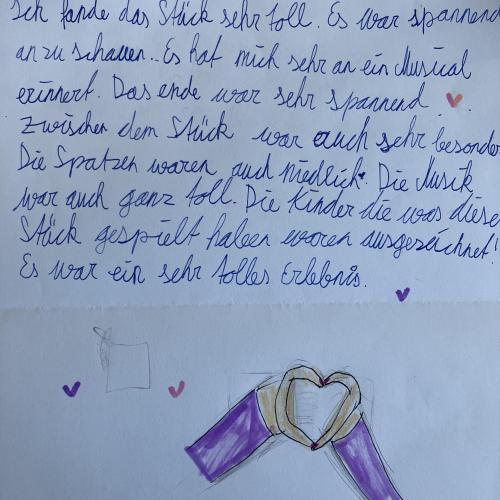 Ich fande das Stück sehr toll. Es war spannend
anzuschauen.. Es hat mich sehr an ein Musical
erinnert. Das ende war sehr spannend
Zwischen dem Stück war auch sehr besonder
Die Spatzen waren auch niedlich. Die Musik
war auch ganz toll. Die Kinder die was diese
Stück gespielt haben waren ausgezeichnet!
Es war ein sehr tolles Erlebnis.